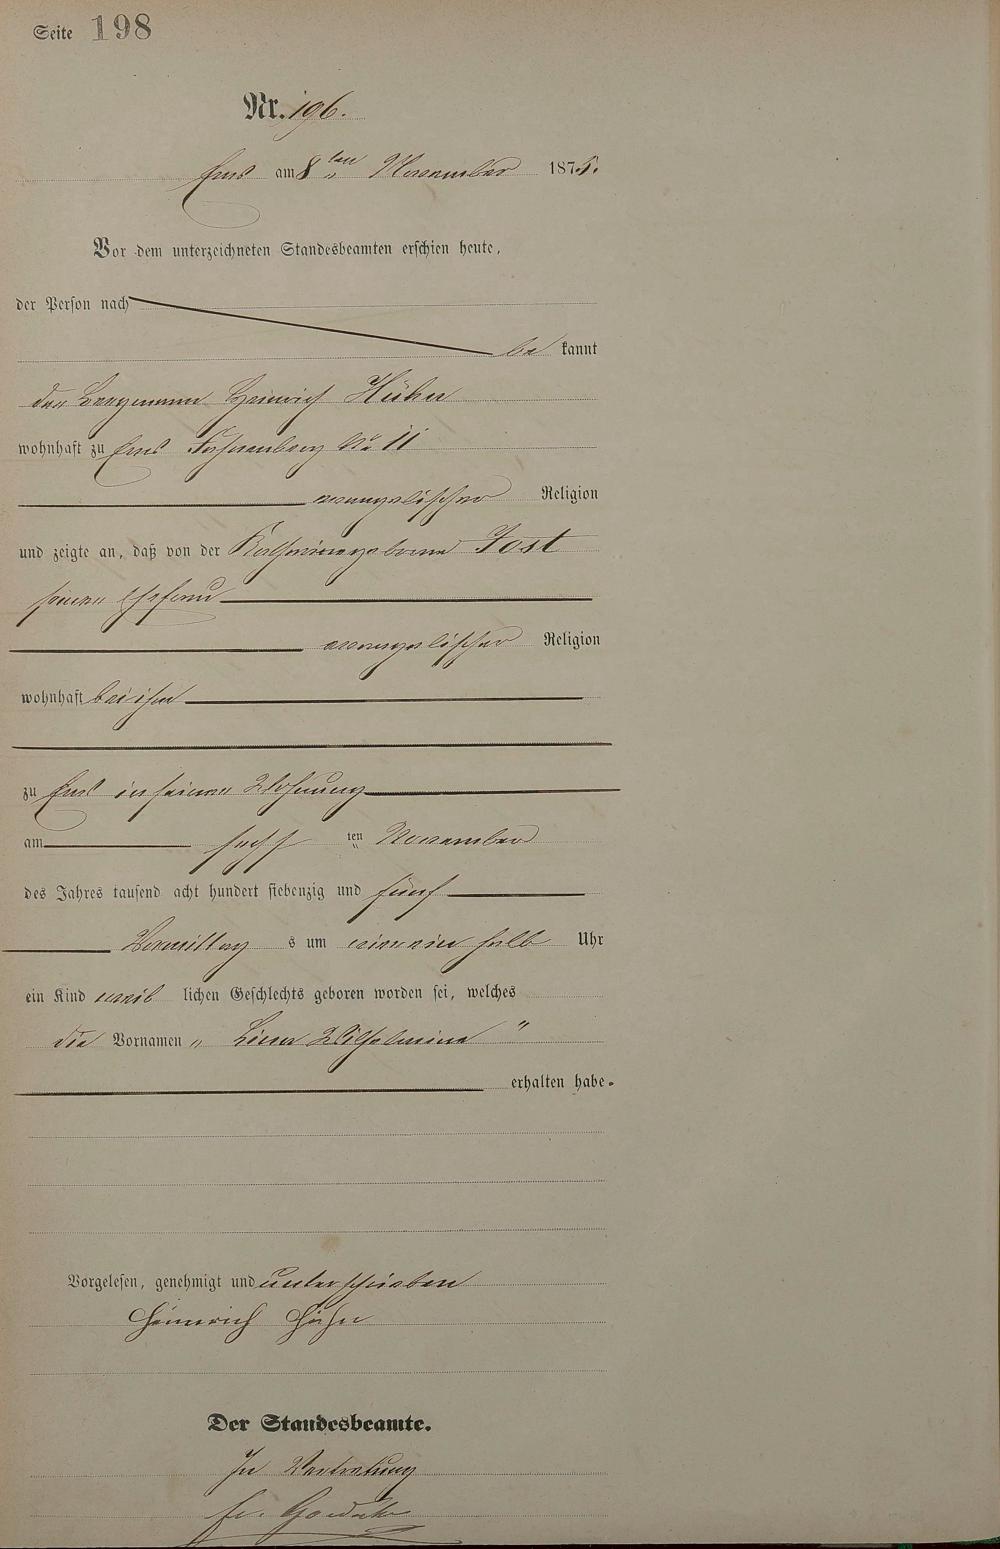 Seite 198
Nr. 196.
Ems am 8ten November 1875.
Vor dem unterzeichneten Standesbeamten erschien heute,
der Person nach
be kannt
der Bergmann Heinrich Hühn
wohnhaft zu Ems No 11
evangelischer Religion
und zeigte an, daß von der Katharina geborene Jost
seiner Ehefrau
evangelischer Religion
wohnhaft bei ihm
zu Ems in seiner Wohnung
am sechs ten November
des Jahres tausend acht hundert siebenzig und fünf
Vormittag s um ein halb Uhr
ein Kind weib lichen Geschlechts geboren worden sei, welches
die Vornamen „ Wilhelmine "
erhalten habe.
Vorgelesen, genehmigt und unterschrieben
Heinrich Hühn
Der Standesbeamte.
In Vertretung